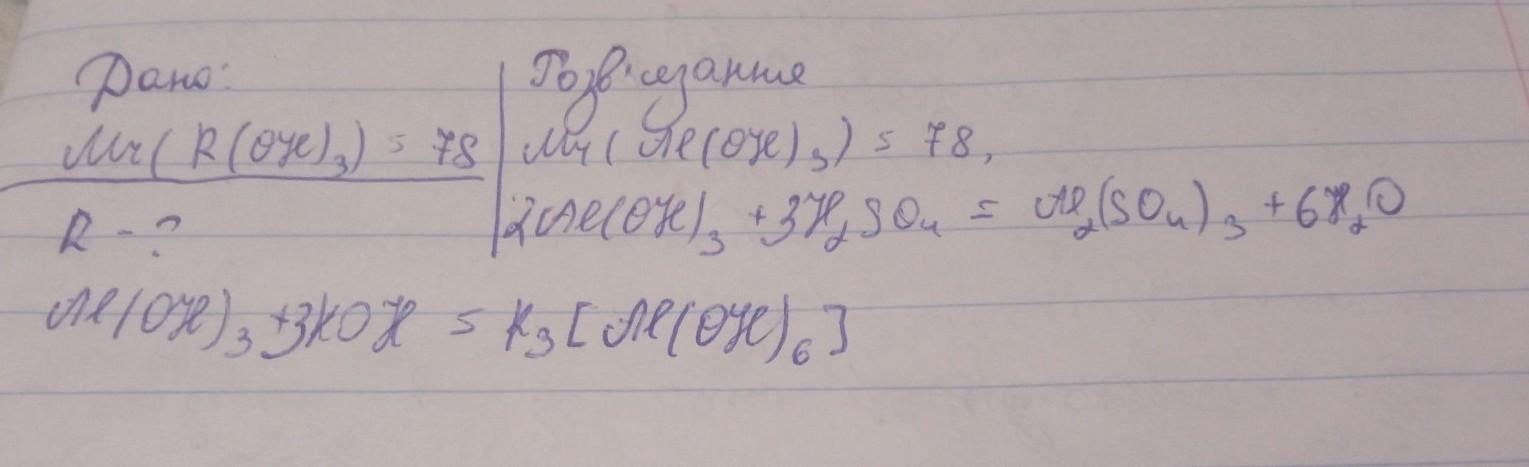 Дано:
Mr(R(OH)₃) = 78
R - ?
Розв'язання
Mr(Al(OH)₃) = 78,
2Al(OH)₃ + 3H₂SO₄ = Al₂(SO₄)₃ + 6H₂O
Al(OH)₃ + 3KOH = K₃[Al(OH)₆]